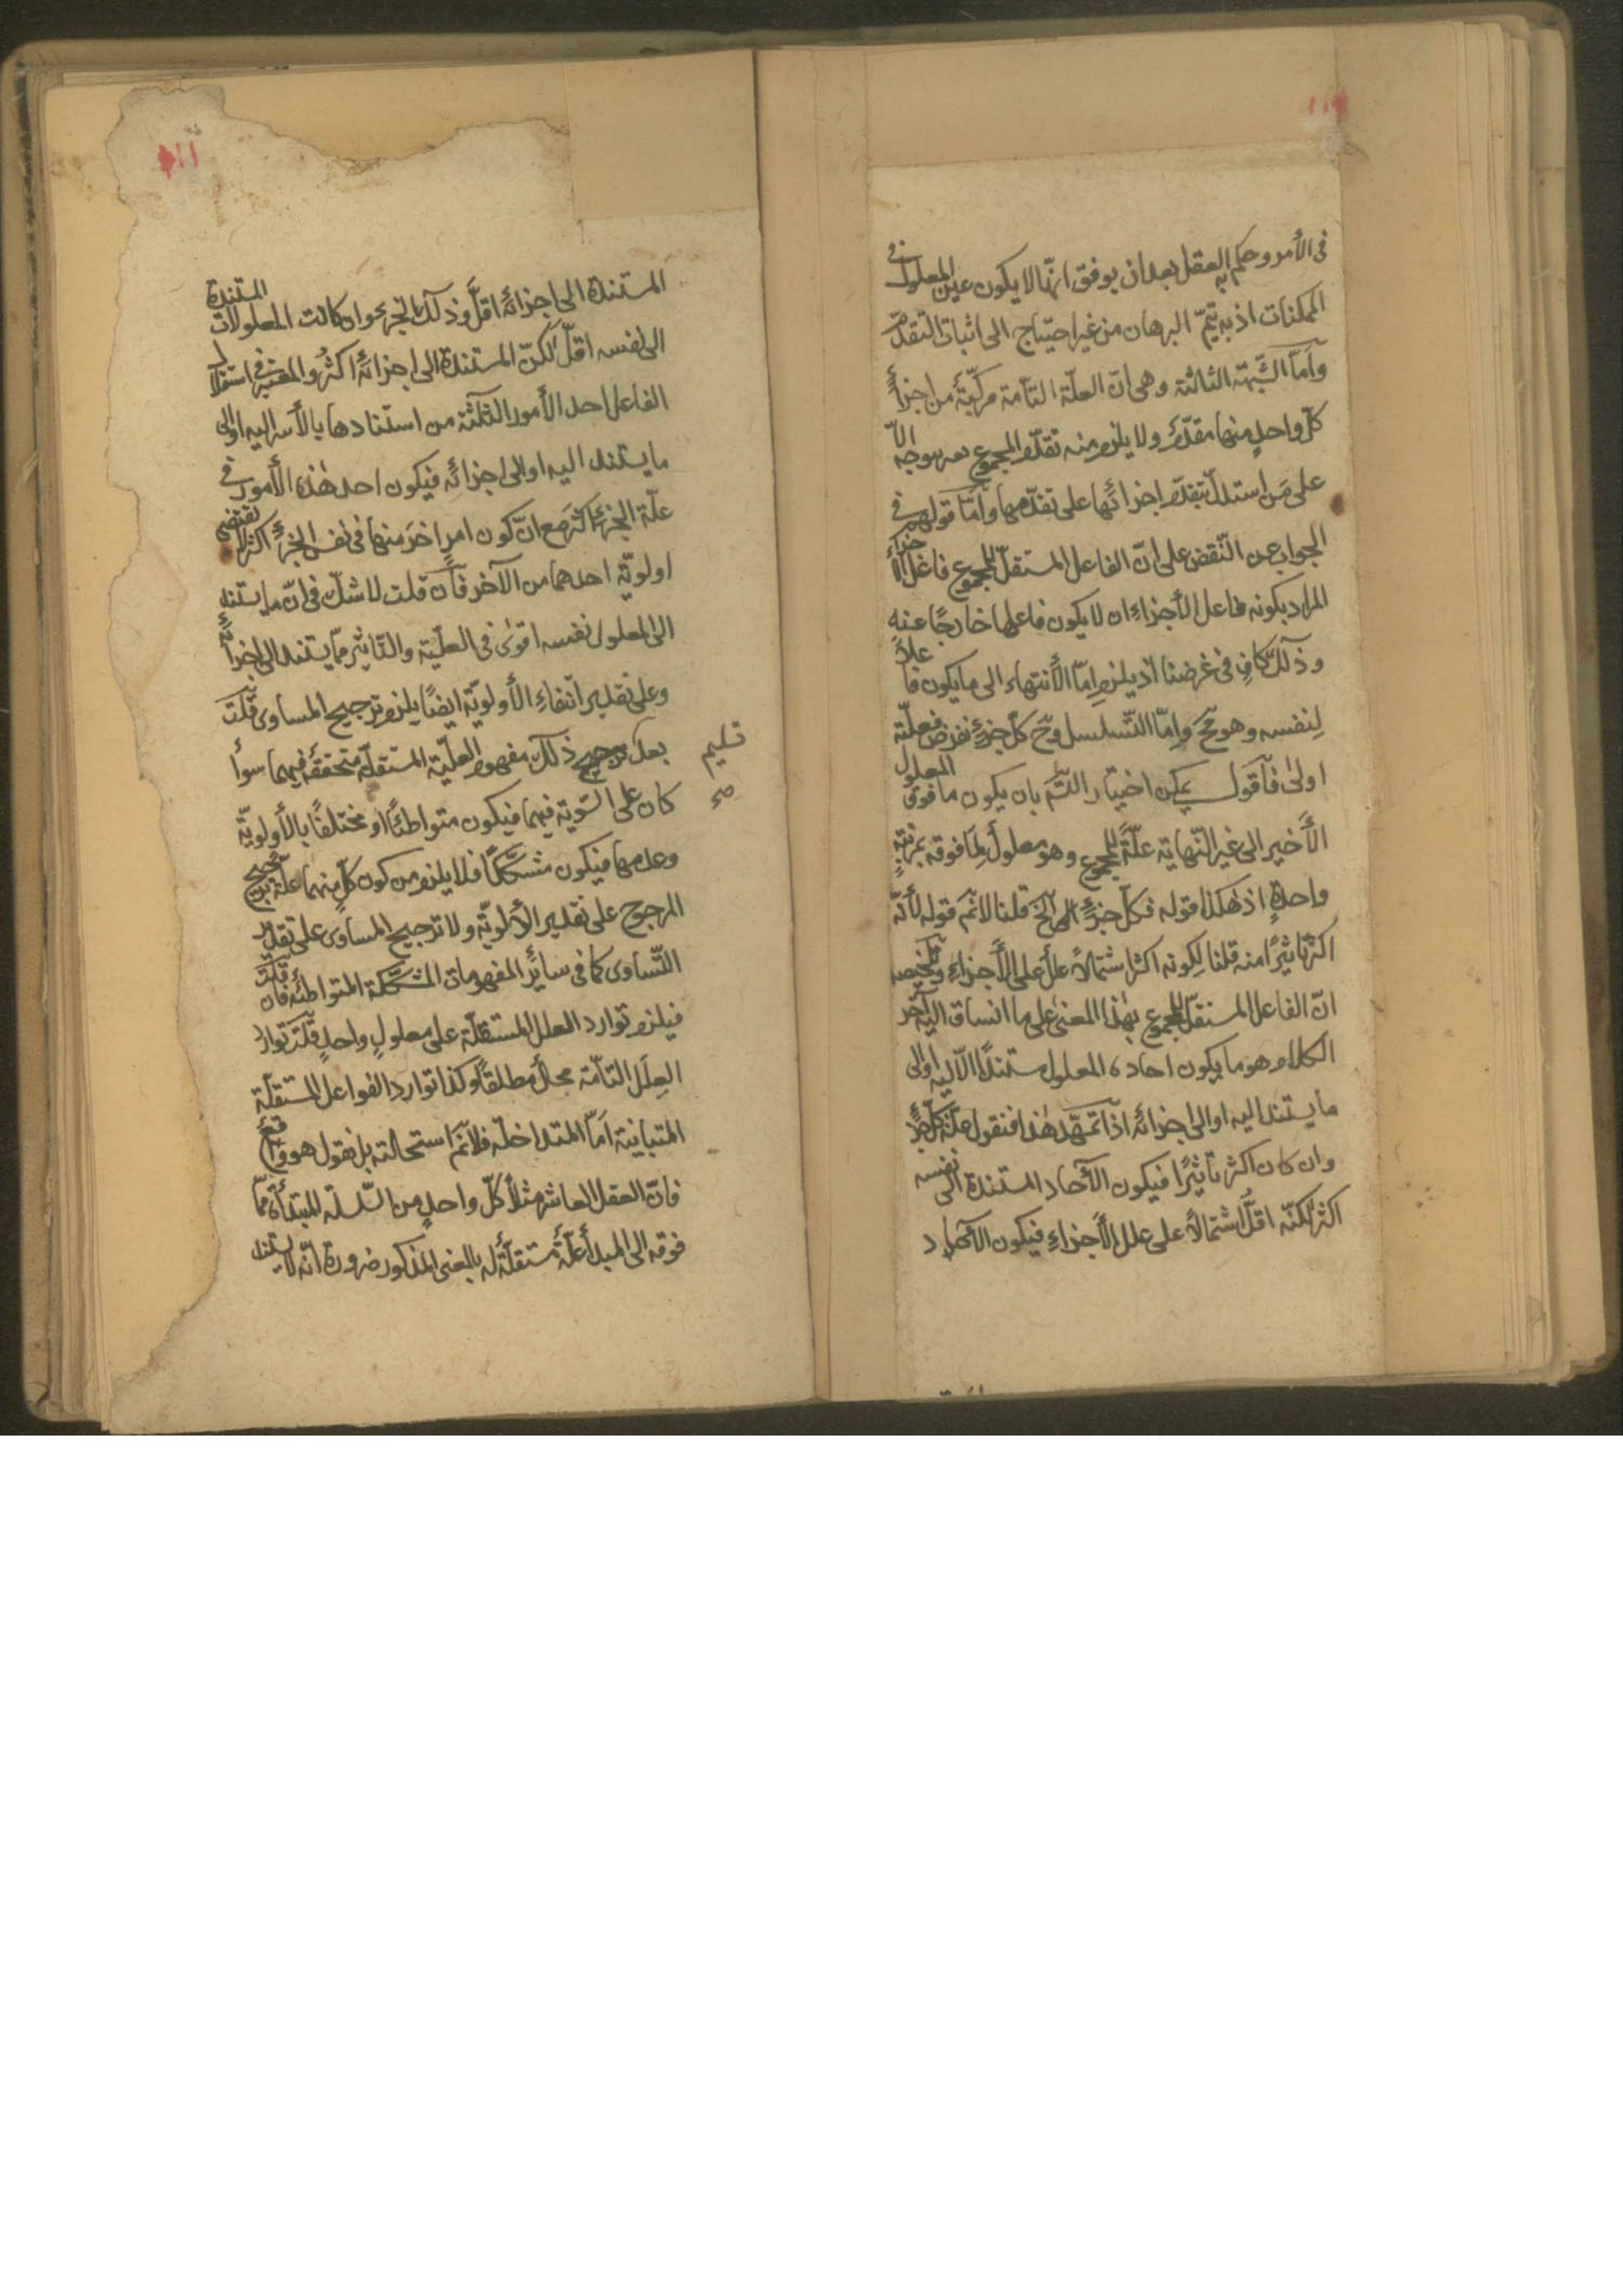 في الأمر وحكم به العقل بعد ان يوفق انها لا يكون عين المعلول في
الممكنات اذ به يتمّ البرهان من غير احتياج الى اثبات التقدّم
وأمّا الشبهة الثالثة وهى انّ العلّة التامة مركّبة من اجزاءٍ
كلّ واحدٍ منها مقدّم ولا يلزم منه تقدّم المجموع الّا
على مَن استدلّ بتقدّم اجزائها على تقدّمها وامّا قولهم في
الجواب عن النّقض على انّ الفاعل المستقلّ للمجموع فاعل الأجزاء
المراد بكونه فاعل الأجزاء ان لا يكون فاعلها خارجًا عنه
وذلك كافٍ في غرضنا اذ يلزم امّا الأنتهاء الى ما يكون فاعلاً
لِنفسه وهو مح وامّا التّسلسل وح كلّ جزءٍ نفرض فعلّته
اولىٰ فأقول يمكن اختيار التسم بان يكون ما فوق المعلول
الأخير الى غير النّهاية علّةً للمجموع وهو معلولٌ لِمَا فوقه بمرتبةٍ
واحدةٍ اذ هٰكذا قوله فكلّ جزءٍ الخ قلنا لا نم قوله لأنّه
اكثر تاثيرًا منه قلنا لِكونه اكثر اشتمالاً على الأجزاء وتلخيصه
انّ الفاعل المستقلّ للمجموع بهٰذا المعنىٰ على ما انساق اليه آخر
الكلام هو ما يكون احاد المعلول مستندًا الّا اليه او الى
ما يستند اليه او الى اجزائه اذا تمهّد هٰذا فنقول علّة كلّ جزءٍ
وان كان اكثر تأثيرًا فيكون الآحاد المستندة الى نفسه
اكثر لكنّه اقلّ اشتمالاً على علل الأجزاءِ فيكون الآحاد
المستندة الى اجزائه اقلّ وذلك الجزء وان كانت المعلولات المستندة
الى نفسه اقلّ لكنّ المستندة الى اجزائه اكثر والمعتبر في استقلال
الفاعل احد الأمور الثلثة من استنادها بالأسر اليه او الى
ما يستند اليه او الى اجزائه فيكون احد هٰذه الأمور في
علّة الجزء اكثر مع انّ كون امرٍ اخرَ منها في نفس الجزء اكثر لا تقتضى
اولويّة احدهما من الآخر فآن قلت لا شكّ في انّ ما يستند
الى المعلول نفسه اقوىٰ في العلّية والتّاثير ممّا يستند الى اجزائه
وعلى تقدير انتفاءِ الأولويّة ايضًا يلزم ترجيح المساوى قلت
بعد تسليم ذلك مفهوم العلّية المستقلّة متحققة فيهما سوأ
كان على السّوية فيهما فيكون متواطئًا او مختلفًا بالأولويّة
وعدمها فيكون مشكّكًا فلا يلزم من كون كلّ منهما علّة ترجيح
المرجوح على تقدير الأولويّة ولا ترجيح المساوى على تقدير
التّساوى كما في سائر المفهومات المشكّكة المتواطئه فان قلت
فيلزم توارد العلل المستقلّة على معلولٍ واحدٍ قلت توارد
العِلَل التامّة محالٌ مطلقًا وكذا توارد الفواعل المستقلّة
المتباينة امّا المتداخلة فلا نم استحالته بل نقول هو واقع
فانّ العقل العاشر مثلاً كلّ واحدٍ من السّلسلة المبتدأة ممّا
فوقه الى المبدأ علّة مستقلّة له بالمعنى المذكور ضرورة انّه لا يستند
تسليم
صح